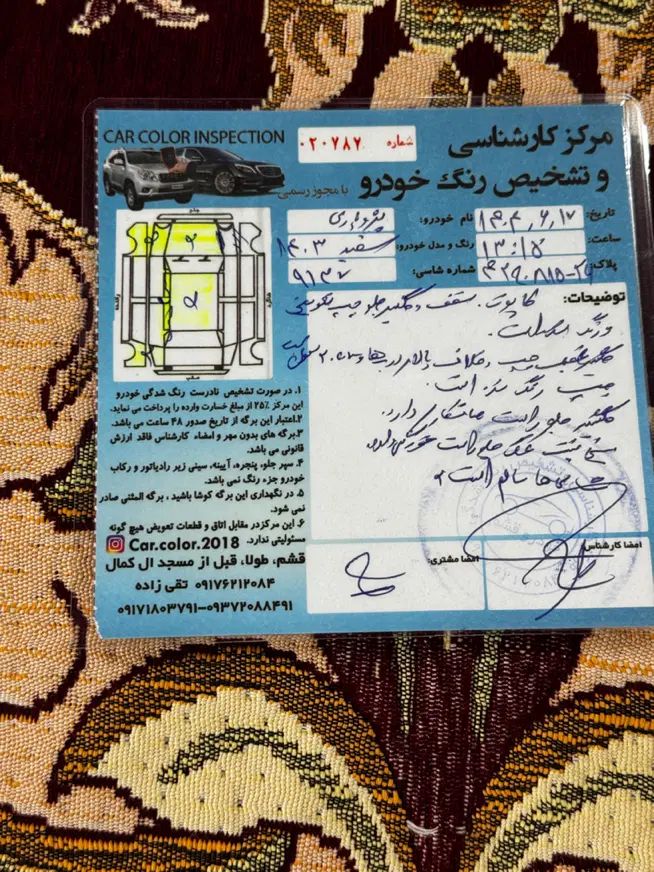 CAR COLOR INSPECTION
مرکز کارشناسی
و تشخیص رنگ خودرو
با مجوز رسمی
شماره ۰۲۰۷۸۷
تاریخ: ۱۴۰۴,۶,۱۷ نام خودرو:
ساعت: ۱۳:۱۵ رنگ و مدل خودرو: سفید ۱۴۰۳
پلاک: شماره شاسی: ۹۱۳۷
جلو
راننده
شاگرد
عقب
توضیحات: کاپوت. سقف و گلگیر جلو چپ تعویض
و رنگ است.
چپ رنگ شده است.
گلگیر جلو راست دارد.
سالم است
۱. در صورت تشخیص نادرست رنگ شدگی خودرو
این مرکز ۲۵٪ از مبلغ خسارت وارده را پرداخت می نماید.
۲.اعتبار این برگه از تاریخ صدور ۴۸ ساعت می باشد.
۳.برگه های بدون مهر و امضاء کارشناس فاقد ارزش
قانونی می باشد.
۴. سپر جلو، پنجره، آیینه، سینی زیر رادیاتور و رکاب
خودرو جزء رنگ نمی باشد.
۵. در نگهداری این برگه کوشا باشید ، برگه المثنی صادر
نمی شود.
۶. این مرکز در مقابل اتاق و قطعات تعویض هیچ گونه
مسئولیتی ندارد.
Car.color.2018
قشم، طولا، قبل از مسجد ال کمال
۰۹۱۷۶۲۱۲۰۸۴ تقی زاده
۰۹۱۷۱۸۰۳۷۹۱-۰۹۳۷۲۰۸۸۴۹۱
امضا مشتری:
امضا کارشناس: